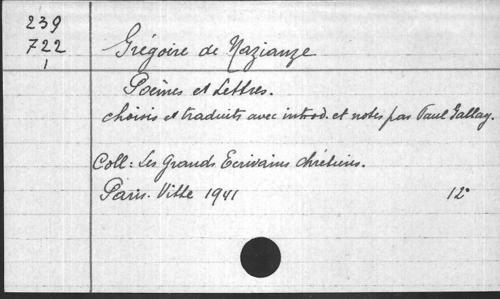 239
722
1
Grégoire de Nazianze
Poèmes et Lettres.
choisis et traduits avec introd. et notes par Paul Gallay.
Coll: Les Grands Ecrivains chrétiens.
Paris. Vitte 1941 12°